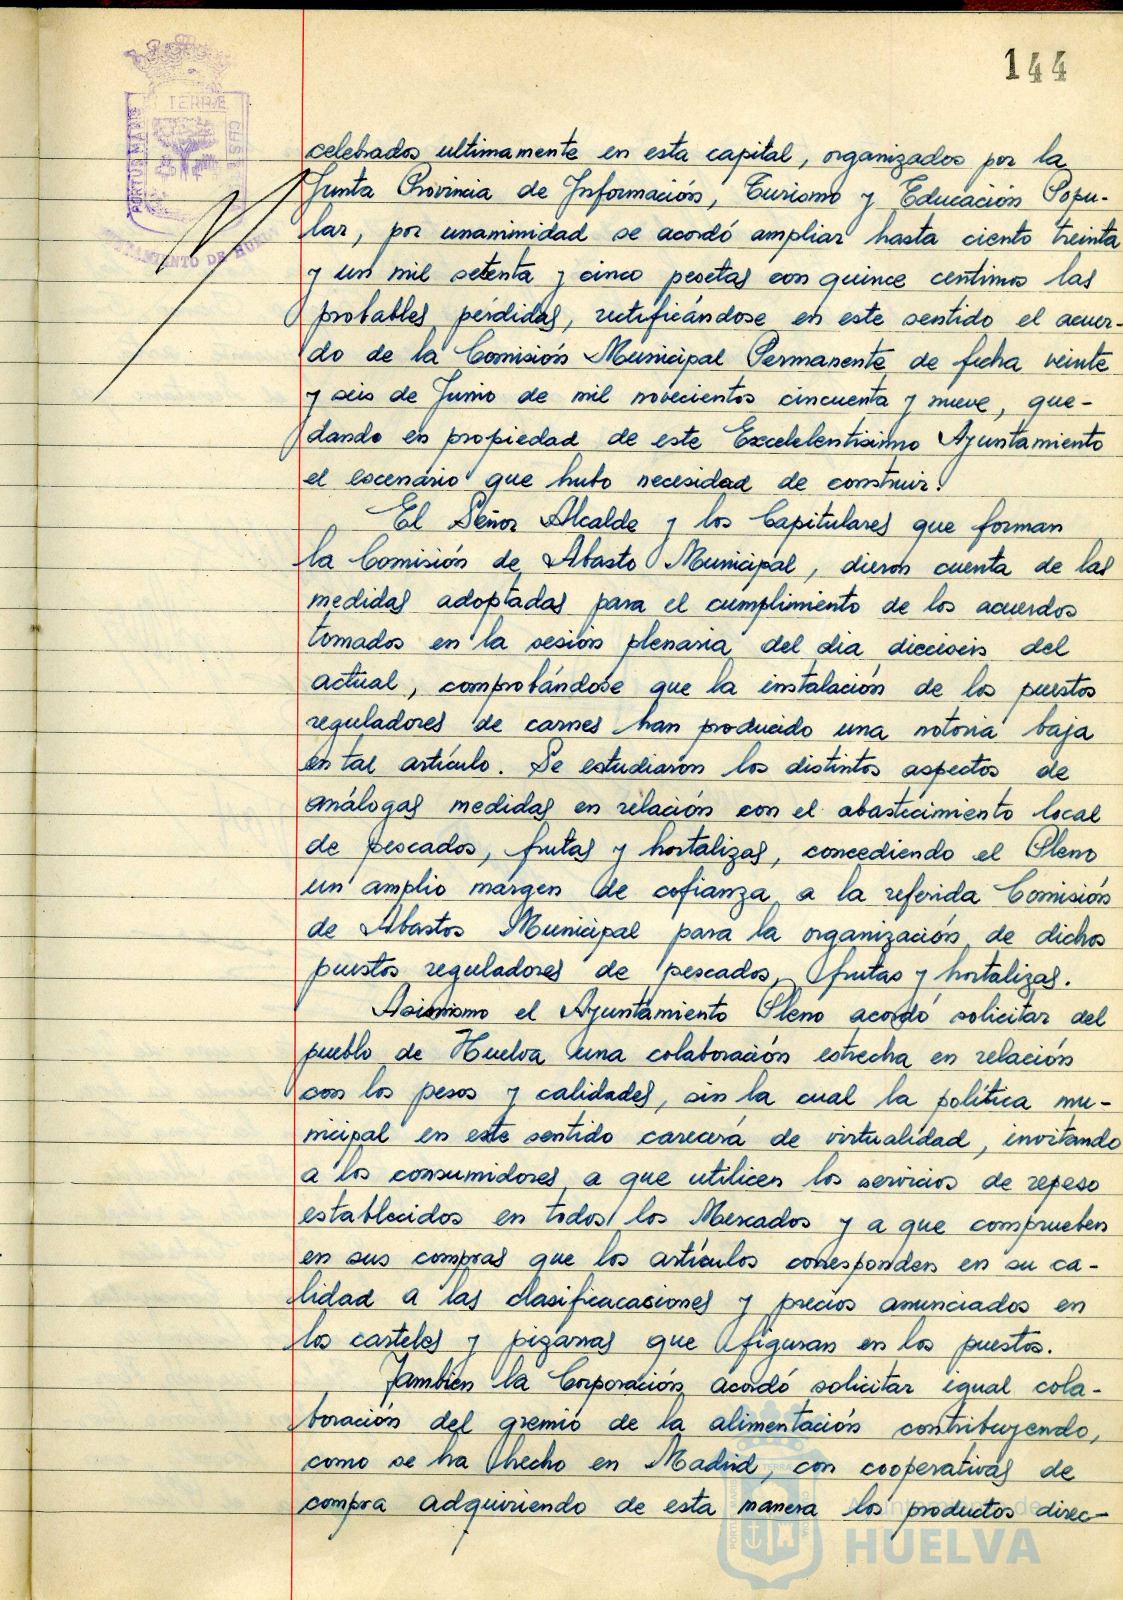 144
TERRÆ
PORTUS MARIS
CUST
AYUNTAMIENTO DE HUELVA
celebrados ultimamente en esta capital, organizados por la
Junta Provincia de Información, Turismo y Educación Popu-
lar, por unanimidad se acordó ampliar hasta ciento treinta
y un mil setenta y cinco pesetas con quince centimos las
probables pérdidas, rectificándose en este sentido el acuer-
do de la Comisión Municipal Permanente de fecha veinte
y seis de Junio de mil novecientos cincuenta y nueve, que-
dando en propiedad de este Excelelentisimo Ayuntamiento
el escenario que hubo necesidad de construir.
El Señor Alcalde y los Capitulares que forman
la Comisión de Abasto Municipal, dieron cuenta de las
medidas adoptadas para el cumplimiento de los acuerdos
tomados en la sesión plenaria del dia dieciseis del
actual, comprobándose que la instalación de los puestos
reguladores de carnes han producido una notoria baja
en tal artículo. Se estudiaron los distintos aspectos de
análogas medidas en relación con el abastecimiento local
de pescados, frutas y hortalizas, concediendo el Pleno
un amplio margen de cofianza a la referida Comisión
de Abastos Municipal para la organización de dichos
puestos reguladores de pescados, frutas y hortalizas.
Asimismo el Ayuntamiento Pleno acordó solicitar del
pueblo de Huelva una colaboración estrecha en relación
con los pesos y calidades, sin la cual la política mu-
nicipal en este sentido carecerá de virtualidad, invitando
a los consumidores a que utilicen los servicios de repeso
establecidos en todos los Mercados y a que comprueben
en sus compras que los artículos corresponden en su ca-
lidad a las clasificacaciones y precios anunciados en
los carteles y pizarras que figuran en los puestos.
Tambien la Corporación acordó solicitar igual cola-
boración del gremio de la alimentación contribuyendo,
como se ha hecho en Madrid, con cooperativas de
compra adquiriendo de esta manera los productos direc-
Ayuntamiento de
HUELVA